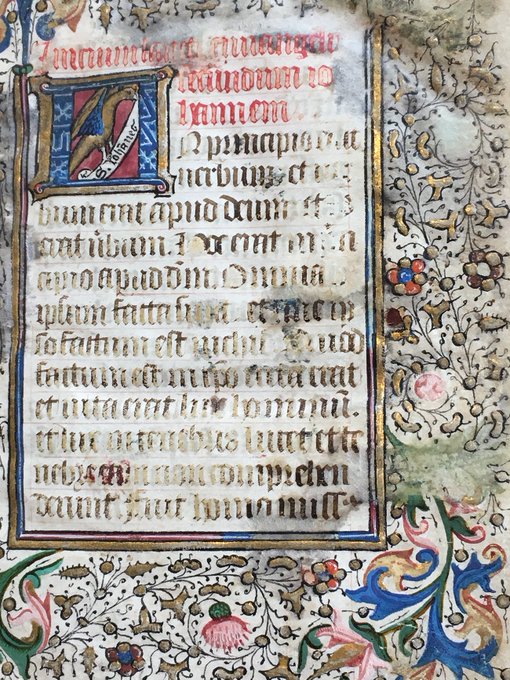 Inicium euuangely
secundum io
hannem
S iohanes
N principio erat
uerbum et
bum erat apud deum et
erat ūbum. Hoc erat in
cipio apud dm. Omnia
ipsum facta sunt et sine ip
so factum est nichil Quod
factum est in ipo uita erat
et uita erat lux hominū.
et lux in tenebris lucet et te
nebre eam non comprehen
derunt. Fuit homo miss